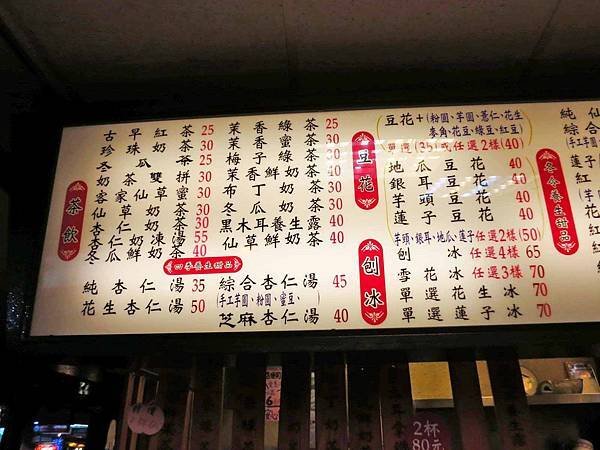 茶飲
古早紅茶 25
珍珠奶茶 30
冬瓜茶 25
奶茶雙拼 30
客家仙草蜜 30
仙草奶茶 30
杏仁奶凍湯 55
冬瓜鮮奶茶 40
茉香綠茶 25
茉香蜜茶 30
梅子綠茶 30
茉香鮮奶茶 40
布丁奶茶 30
冬瓜奶茶 30
黑木耳養生露 40
仙草鮮奶茶 40
四季養生甜品
純杏仁湯 35
花生杏仁湯 50
綜合杏仁湯 45
(手工芋圓、粉圓、蜜豆、)
芝麻杏仁湯 40
豆花
豆花+(粉圓、芋圓、薏仁、花生
麥角、花豆、綠豆、紅豆)
單選(35)或任選2樣(40)
地瓜豆花 40
銀耳豆花 40
芋頭豆花 40
蓮子豆花 40
刨冰
芋頭、銀耳、地瓜、蓮子任選2樣(50)
刨冰任選4樣 65
雪花冰任選3樣 70
單選花生冰 70
單選蓮子冰 70
冬令養生甜品
純
綜合
蓮子
紅
2杯
80元